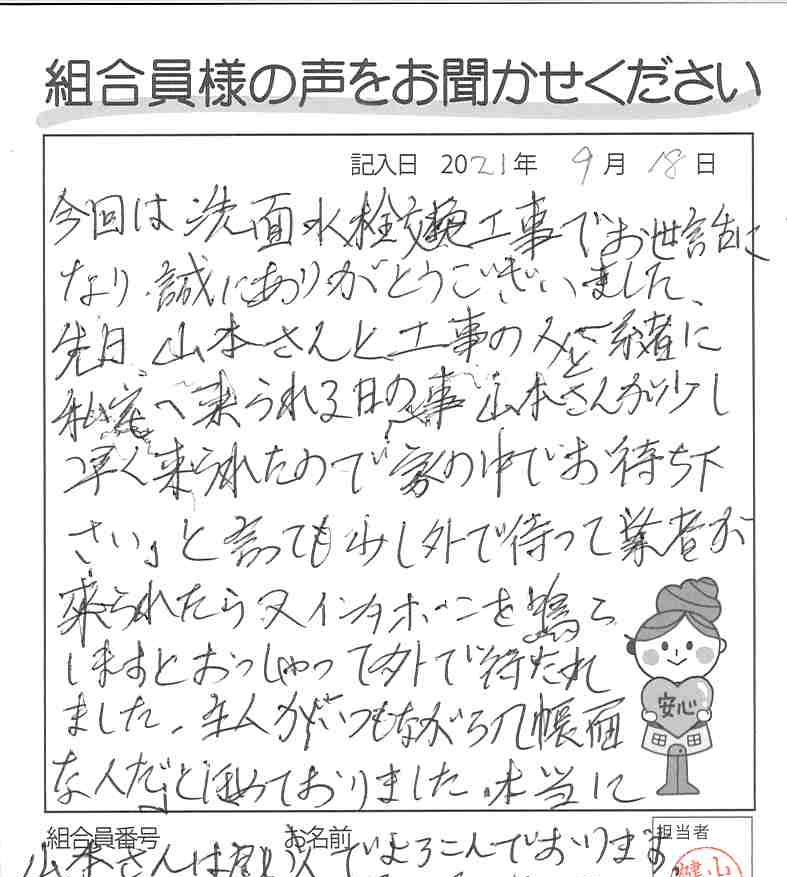 組合員様の声をお聞かせください
記入日 2021年 9月 18日
今回は洗面水栓交換工事でお世話に
なり誠にありがとうございました、
先日 山本さんと工事の人と一緒に
私宅へ来られる日の事 山本さんが少し
早く来られたので家の中でお待ち下
さい」と言っても少し外で待って業者が
来られたら又インターホーンを鳴ら
しますとおっしゃって外で待たれ
ました、主人がいつもながら几帳面
な人だ」とほめておりました。本当に
安心
組合員番号 お名前 担当者
山本さんは でよろこんでおります。
山